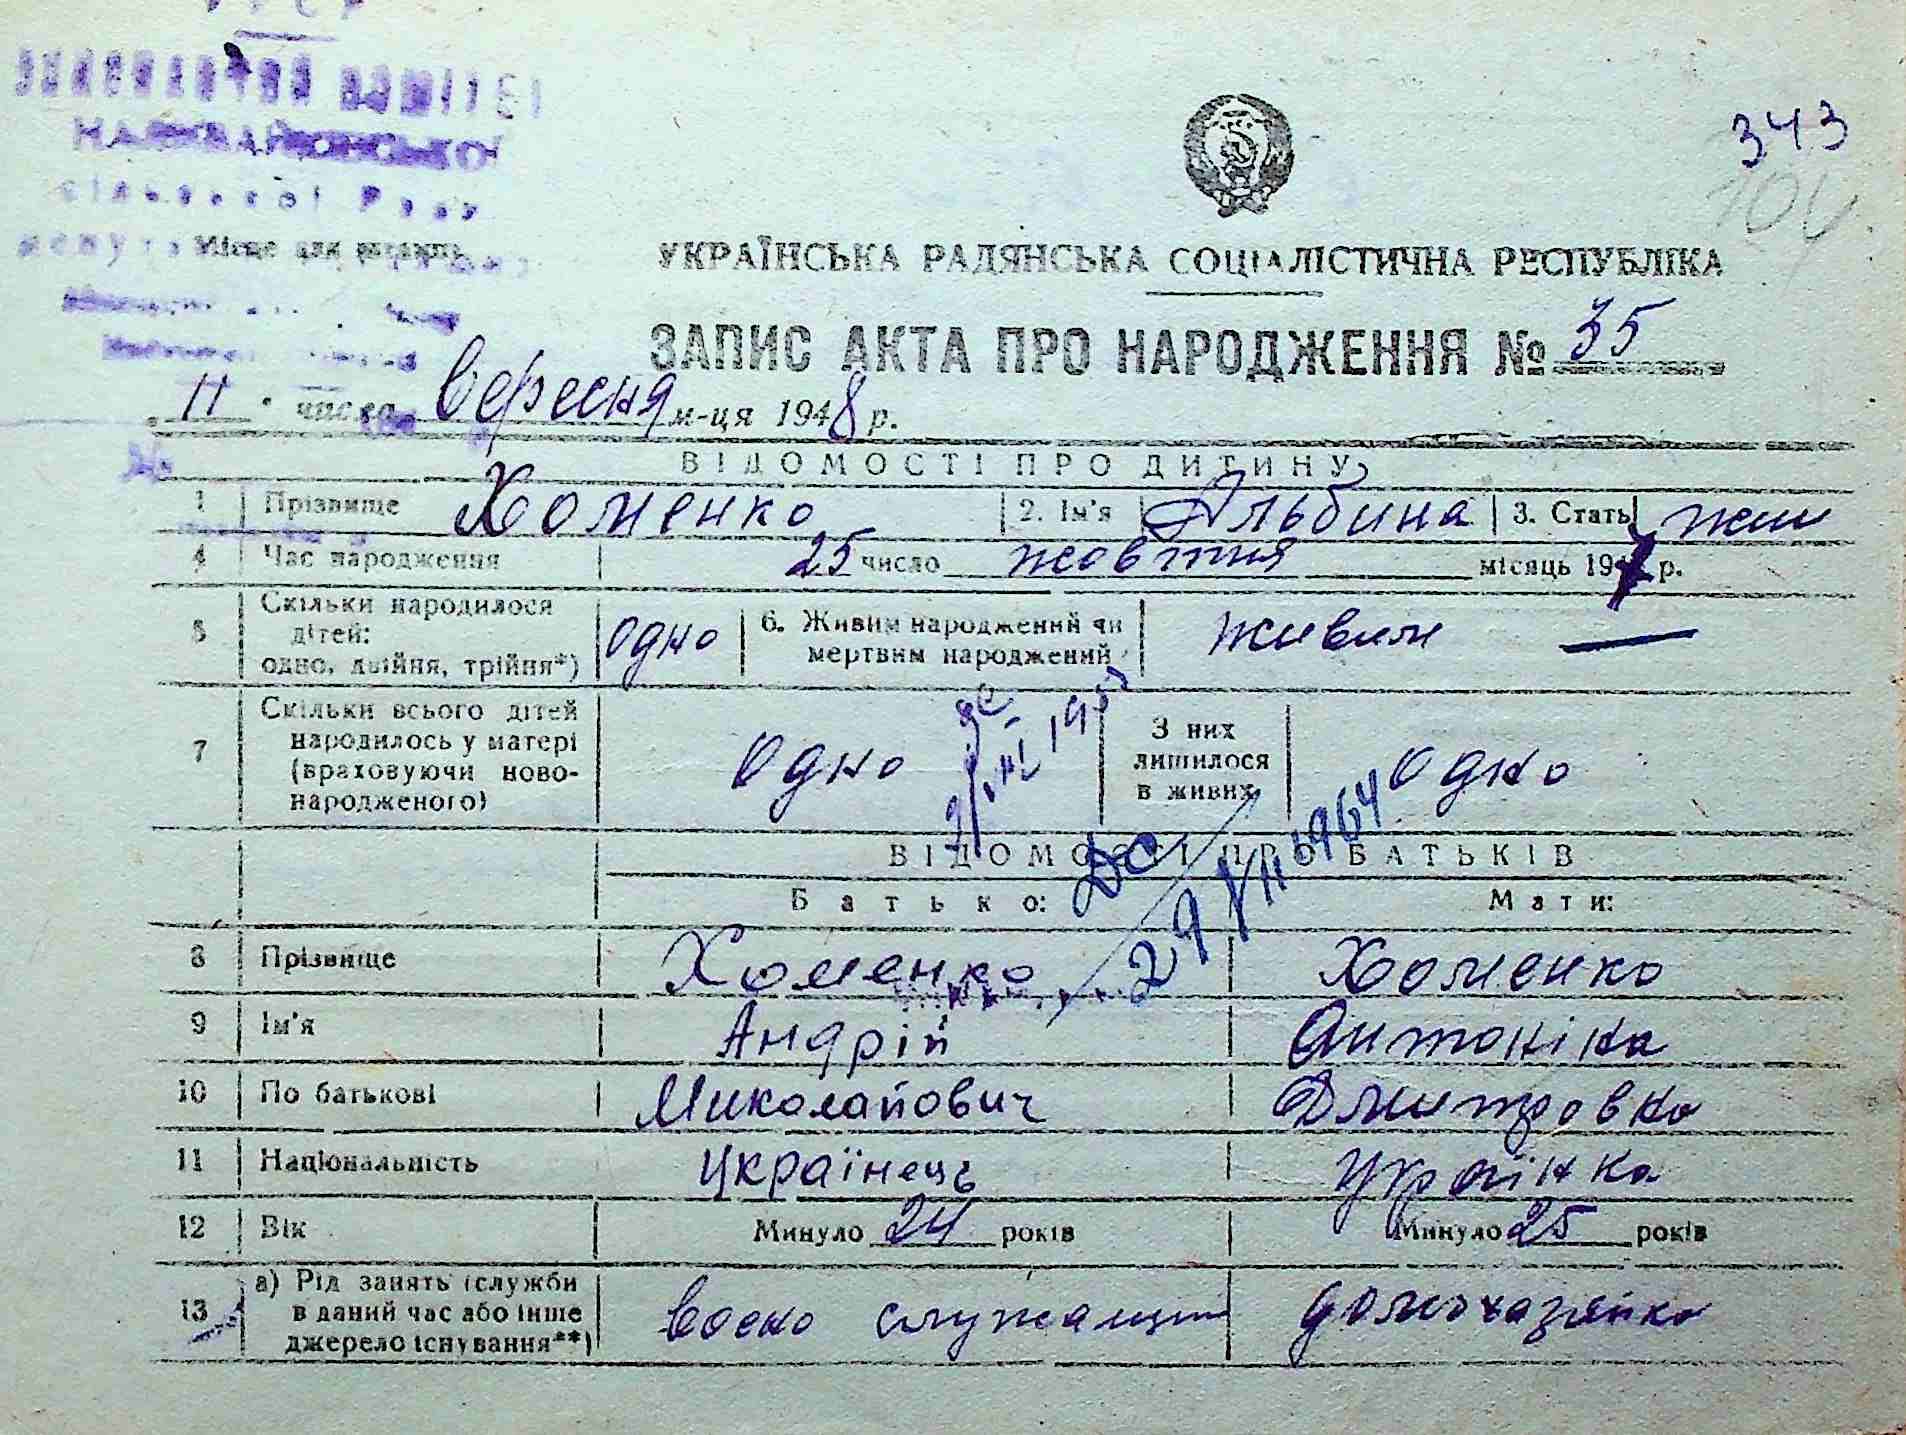 НАЛИВАЙКІВСЬКОЇ
сільської Ради
343
104
Місце для штампа
УКРАЇНСЬКА РАДЯНСЬКА СОЦІАЛІСТИЧНА РЕСПУБЛІКА
ЗАПИС АКТА ПРО НАРОДЖЕННЯ № 35
11 числа вересня м-ця 1948 р.
ВІДОМОСТІ ПРО ДИТИНУ
1 Прізвище Хоменко 2. Ім'я Альбина 3. Стать жін
4 Час народження 25 число жовтня місяць 1947 р.
5 Скільки народилося дітей: одно, двійня, трійня*) одно 6. Живим народжений чи мертвим народжений живим —
7 Скільки всього дітей народилось у матері (враховуючи новонародженого) одно З них лишилося в живих одно
ДС 29 VII 1964
ВІДОМОСТІ ПРО БАТЬКІВ
Батько: Мати:
8 Прізвище Хоменко Хоменко
9 Ім'я Андрій Антоніна
10 По батькові Миколайович Дмитровна
11 Національність Українець Українка
12 Вік Минуло 24 років Минуло 25 років
13 а) Рід занять (служби в даний час або інше джерело існування**) воено служащий домохазяйка